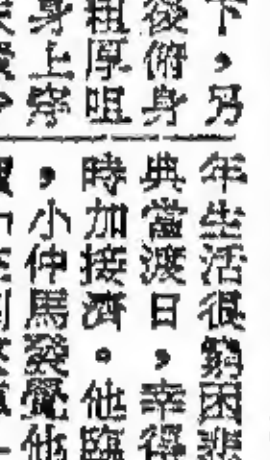 下，乃
後俯身
粗厚咀
身上穿
年生活很窮困悲
典當渡日，幸得
時加接濟。他臨
，小仲馬發覺他